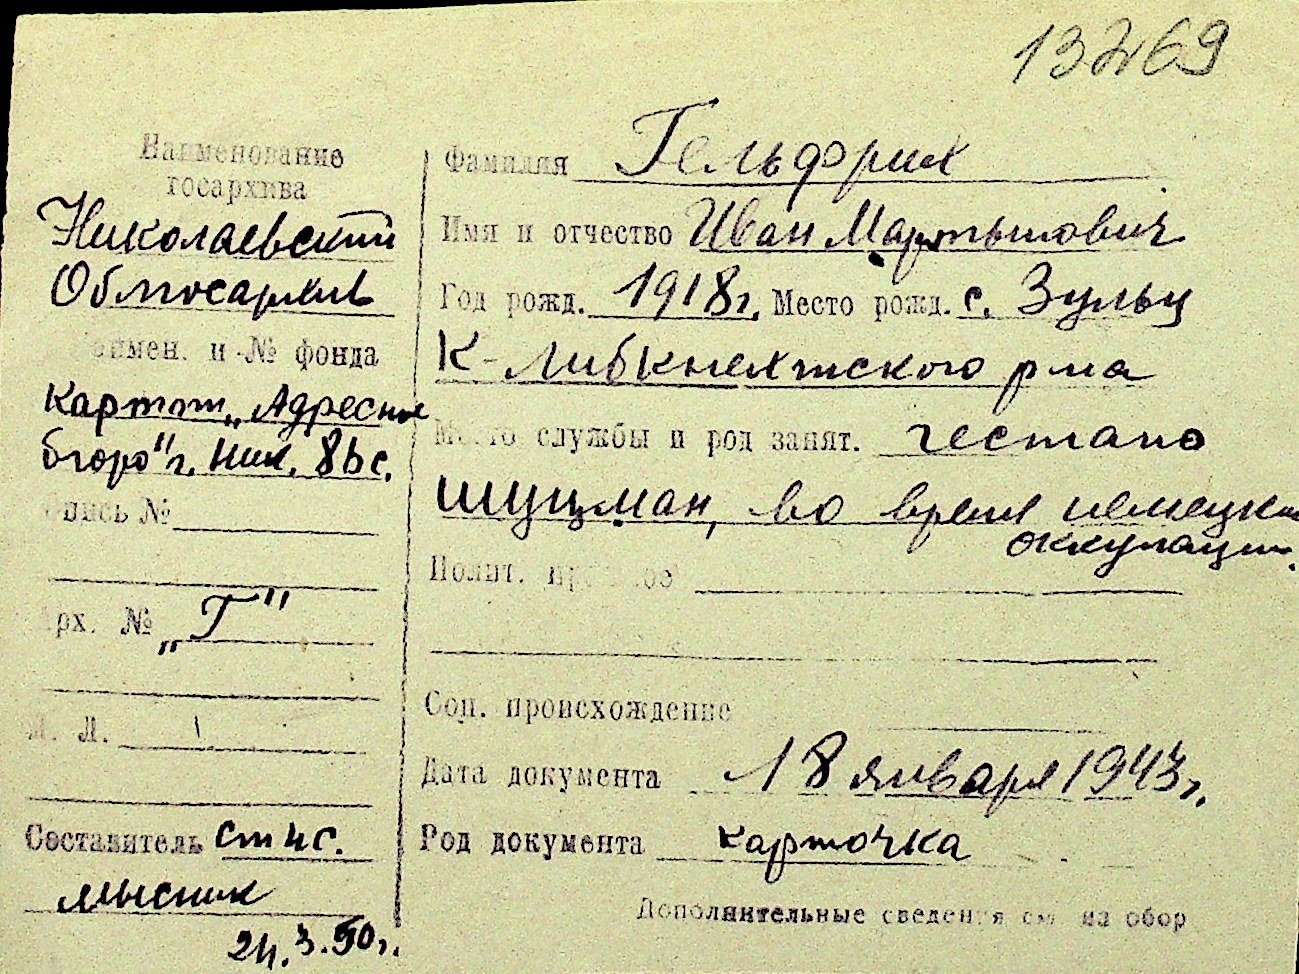 13269
Наименование
госархива
Николаевский
Облгосархив
Наимен. и № фонда
Картот. „Адресное
бюро" г. Ник.
Опись №
Арх. № „Г"
Л. Л. 1
Составитель ст. н. с.
мысник
24.3.50г.
Фамилия Гельфрих
Имя и отчество Иван Мартынович
Год рожд. 1918г. Место рожд. с. Зульц
К-Либкнехтского р-на
Место службы и род занят. гестапо
шуцман, во время немецкой
оккупации.
Полит. прошлое
Соц. происхождение
Дата документа 18 января 1943г.
Род документа карточка
Дополнительные сведения см. на обор